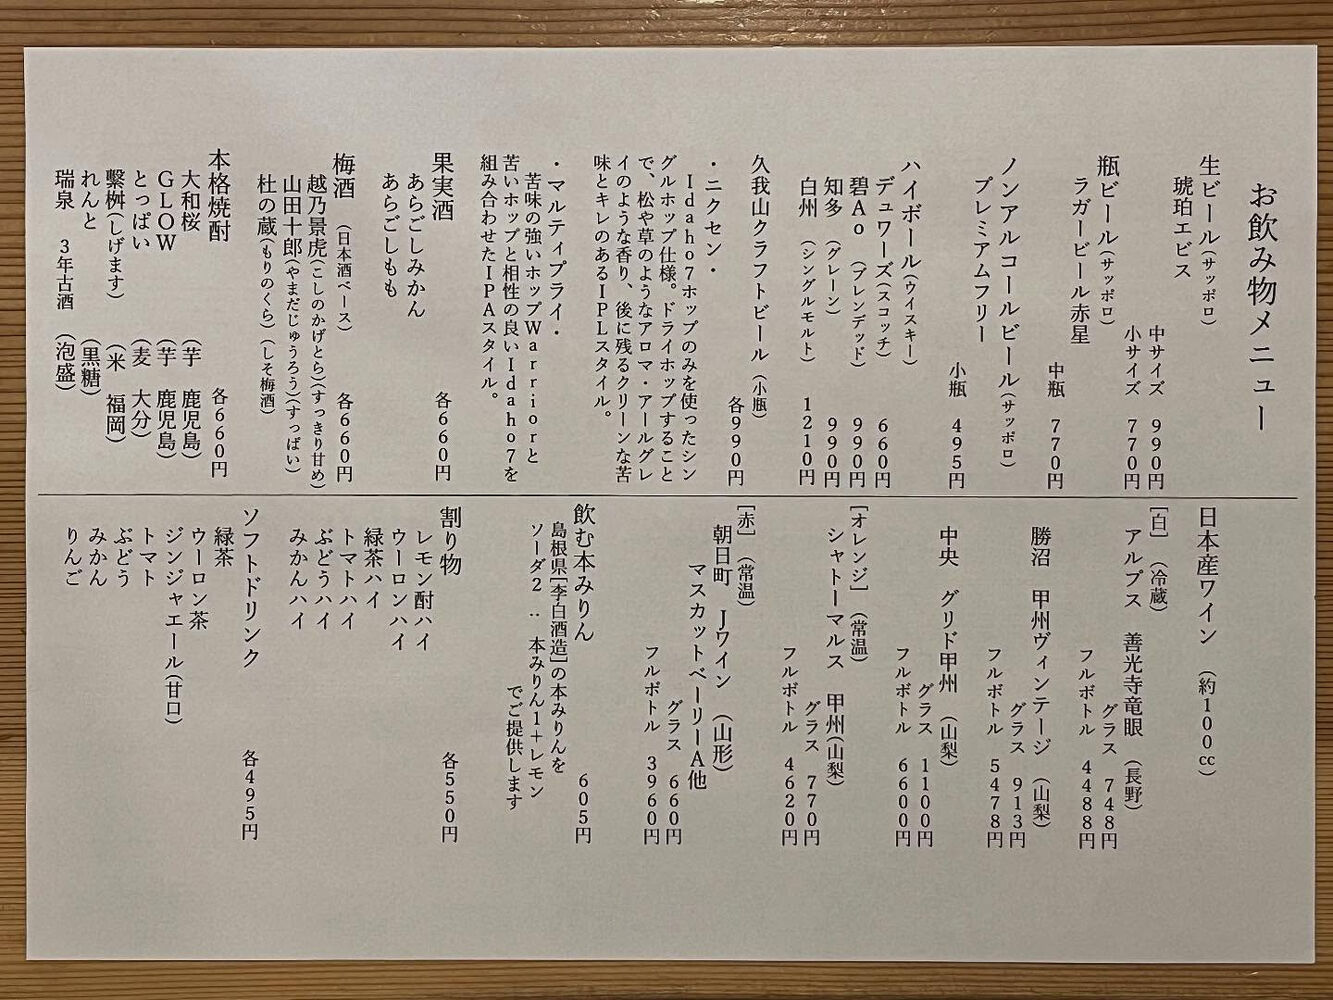 お飲み物メニュー
生ビール(サッポロ)
琥珀エビス
中サイズ 990円
小サイズ 770円
瓶ビール(サッポロ)
ラガービール赤星
中瓶 770円
ノンアルコールビール(サッポロ)
プレミアムフリー
小瓶 495円
ハイボール(ウイスキー)
デュワーズ(スコッチ) 660円
碧Ao (ブレンデッド) 990円
知多 (グレーン) 990円
白州 (シングルモルト) 1210円
久我山クラフトビール(小瓶)
各990円
・ニクセン・
Idaho7ホップのみを使ったシン
グルホップ仕様。ドライホップすること
で、松や草のようなアロマ・アールグレ
イのような香り、後に残るクリーンな苦
味とキレのあるIPLスタイル。
・マルティプライ・
苦味の強いホップWarriorと
苦いホップと相性の良いIdaho7を
組み合わせたIPAスタイル。
果実酒 各660円
あらごしみかん
あらごしもも
梅酒 (日本酒ベース) 各660円
越乃景虎(こしのかげとら)(すっきり甘め)
山田十郎(やまだじゅうろう)(すっぱい)
杜の蔵(もりのくら)(しそ梅酒)
本格焼酎 各660円
大和桜 (芋 鹿児島)
GLOW (芋 鹿児島)
とっぱい (麦 大分)
繫桝(しげます) (米 福岡)
れんと (黒糖)
瑞泉 3年古酒 (泡盛)
日本産ワイン (約100cc)
[白] (冷蔵)
アルプス 善光寺竜眼 (長野)
グラス 748円
フルボトル 4488円
勝沼 甲州ヴィンテージ (山梨)
グラス 913円
フルボトル 5478円
中央 グリド甲州 (山梨)
グラス 1100円
フルボトル 6600円
[オレンジ] (常温)
シャトーマルス 甲州(山梨)
グラス 770円
フルボトル 4620円
[赤] (常温)
朝日町 Jワイン (山形)
マスカットベーリーA他
グラス 660円
フルボトル 3960円
飲む本みりん 605円
島根県[李白酒造]の本みりんを
ソーダ2:本みりん1+レモン
でご提供します
割り物 各550円
レモン酎ハイ
ウーロンハイ
緑茶ハイ
トマトハイ
ぶどうハイ
みかんハイ
ソフトドリンク 各495円
緑茶
ウーロン茶
ジンジャエール(甘口)
トマト
ぶどう
みかん
りんご